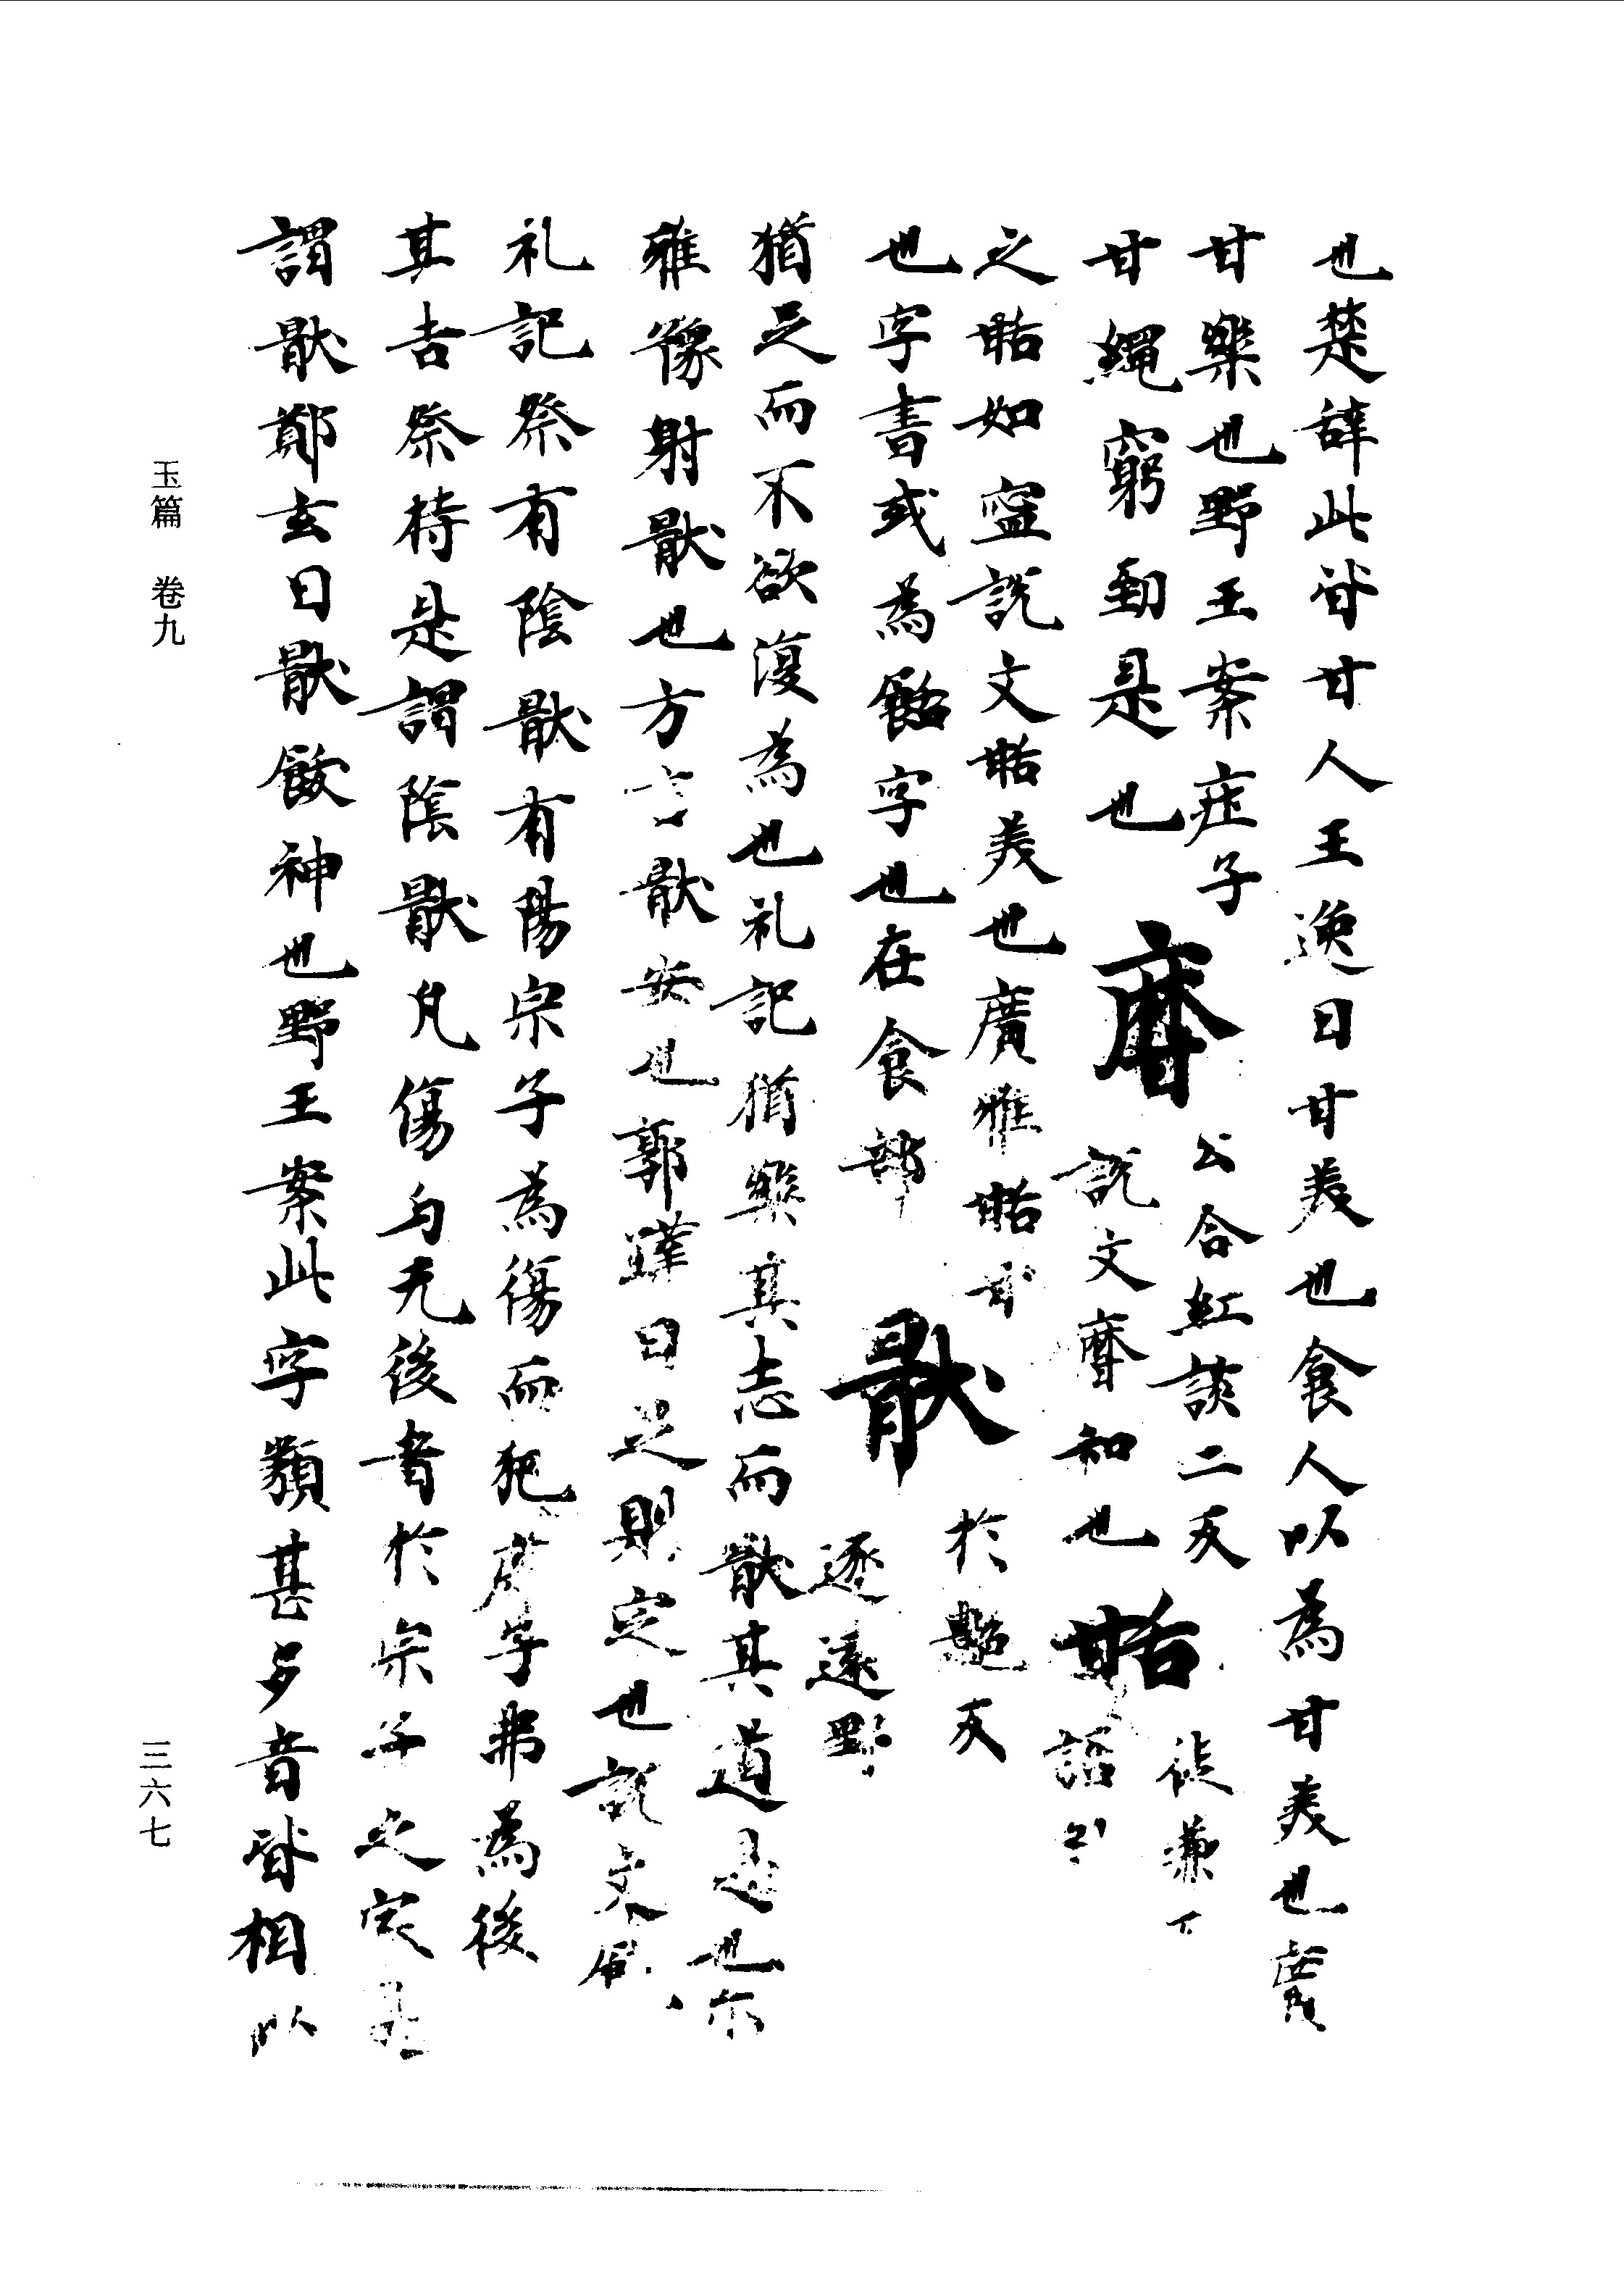 也楚辞此皆甘人王逸曰甘美也食人以為甘美也廣
甘樂也野王案庄子
甘繩窮勁是也
磿
公合紅談二反
説文磿和也
㽐
徒兼
語
之㽐如窓説文㽐美也廣雅㽐甘
也字書或為𩜍字也在食部
猒
於豔反
逐遠野
猶足而不欲復為也礼記猶樂其志而猒其道是也尓
雅豫射猒也方言猒安也郭璞曰足則定也説文
礼記祭有陰猒有陽宗子為傷而死庶子弗為後
其吉祭特是謂陰猒凡傷与无後者於宗子之家是
謂陽猒鄭玄曰猒飫神也野王案此字類甚多音皆相似
玉篇 卷九
三六七